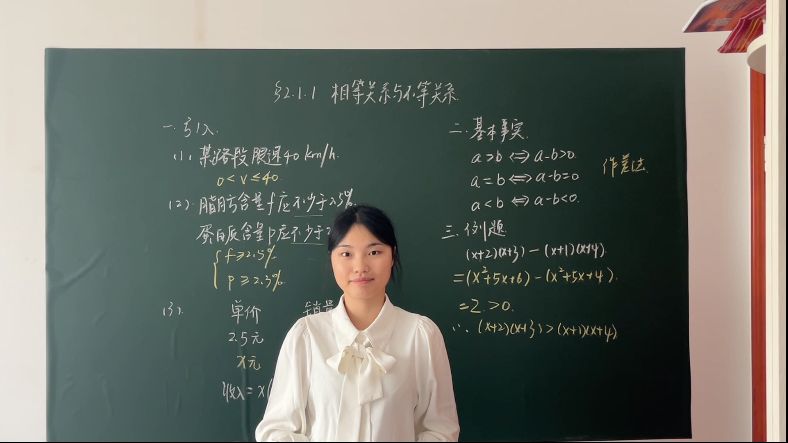 §2.1.1 相等关系与不等关系
一.引入
(1).某路段限速40 km/h.
0<v≤40
(2).脂肪含量f应不少于2.5%
蛋白质含量p应不少于
f≥2.5%
p≥2.3%
(3).
单价 销量
2.5元
x元
收入=x(
二.基本事实
a>b⇔a-b>0.
a=b⇔a-b=0
a<b⇔a-b<0.
作差法
三.例题
(x+2)(x+3)-(x+1)(x+4)
=(x²+5x+6)-(x²+5x+4).
=2.>0.
∴(x+2)(x+3)>(x+1)(x+4)